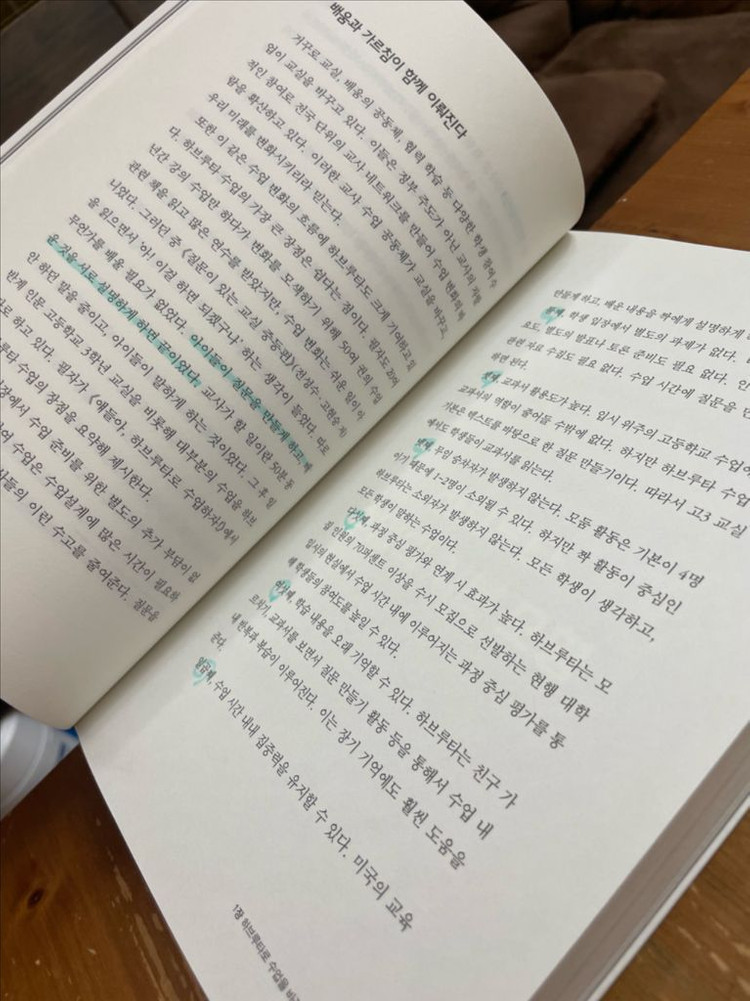 배움과 가르침이 함께 이뤄진다
거꾸로 교실, 배움의 공동체, 협력 학습 등 다양한 학생 참여 수
업이 교실을 바꾸고 있다. 이들은 정부 주도가 아닌 교사의 자발
적인 참여로 전국 단위의 교사 네트워크를 만들어 수업 변화를
람을 확산하고 있다. 이러한 교사 수업 공동체가 교실을 바꾸고,
우리 미래를 변화시키리라 믿는다.
또한 이 같은 수업 변화의 흐름에 하브루타도 크게 기여하고 있
다. 하브루타 수업의 가장 큰 장점은 쉽다는 점이다. 필자도 20여
년간 강의 수업만 하다가 변화를 모색하기 위해 50여 권의 수업
관련 책을 읽고 많은 연수를 받았지만, 수업 변화는 쉬운 일이 아
니었다. 그러던 중 《질문이 있는 교실 중등편》(전성수·고현승 저)
을 읽으면서 '아! 이걸 하면 되겠구나' 하는 생각이 들었다. 따로
무언가를 배울 필요가 없었다. 아이들이 질문을 만들게 하고, 배
운 것을 서로 설명하게 하면 끝이었다. 교사가 할 일이란 50분 동
안 하던 말을 줄이고, 아이들이 말하게 하는 것이었다. 그 후 일
반계 인문 고등학교 3학년 교실을 비롯해 대부분의 수업을 하브
로 하고 있다. 필자가 《얘들아, 하브루타로 수업하자!》에서
루타 수업의 장점을 요약해 제시한다.
장에서 수업 준비를 위한 별도의 추가 부담이 없
여 수업은 수업설계에 많은 시간이 필요하
사들의 이런 수고를 줄여준다. 질문을
만들게 하고, 배운 내용을 짝에게 설명하게
학생 입장에서 별도의 과제가 없다.
요도, 별도의 발표나 토론 준비도 필요 없다.
관련 자료 수집도 필요 없다. 수업 시간에 질문을
하면 된다.
교과서 활용도가 높다. 입시 위주의 고등학교 수업에
교과서의 역할이 줄어들 수밖에 없다. 하지만 하브루타 수업
기본은 텍스트를 바탕으로 한 질문 만들기이다. 따라서 고3 교실
에서도 학생들이 교과서를 읽는다.
넷째, 무임 승차자가 발생하지 않는다. 모둠 활동은 기본이 4명
이기 때문에 1~2명이 소외될 수 있다. 하지만 짝 활동이 중심인
하브루타는 소외자가 발생하지 않는다. 모든 학생이 생각하고,
모든 학생이 말하는 수업이다.
다섯째, 과정 중심 평가와 연계 시 효과가 높다. 하브루타는 모
집 인원의 70퍼센트 이상을 수시 모집으로 선발하는 현행 대학
입시의 현상에서 수업 시간 내에 이루어지는 과정 중심 평가를 통
해 학생들의 참여도를 높일 수 있다.
여섯째, 학습 내용을 오래 기억할 수 있다. 하브루타는 친구 가
르치기, 교과서를 보면서 질문 만들기 활동 등을 통해서 수업 내
내 반복과 복습이 이루어진다. 이는 장기 기억에도 훨씬 도움을
준다.
일곱째, 수업 시간 내내 집중력을 유지할 수 있다. 미국의 교육
1장 하브루타로 수업을